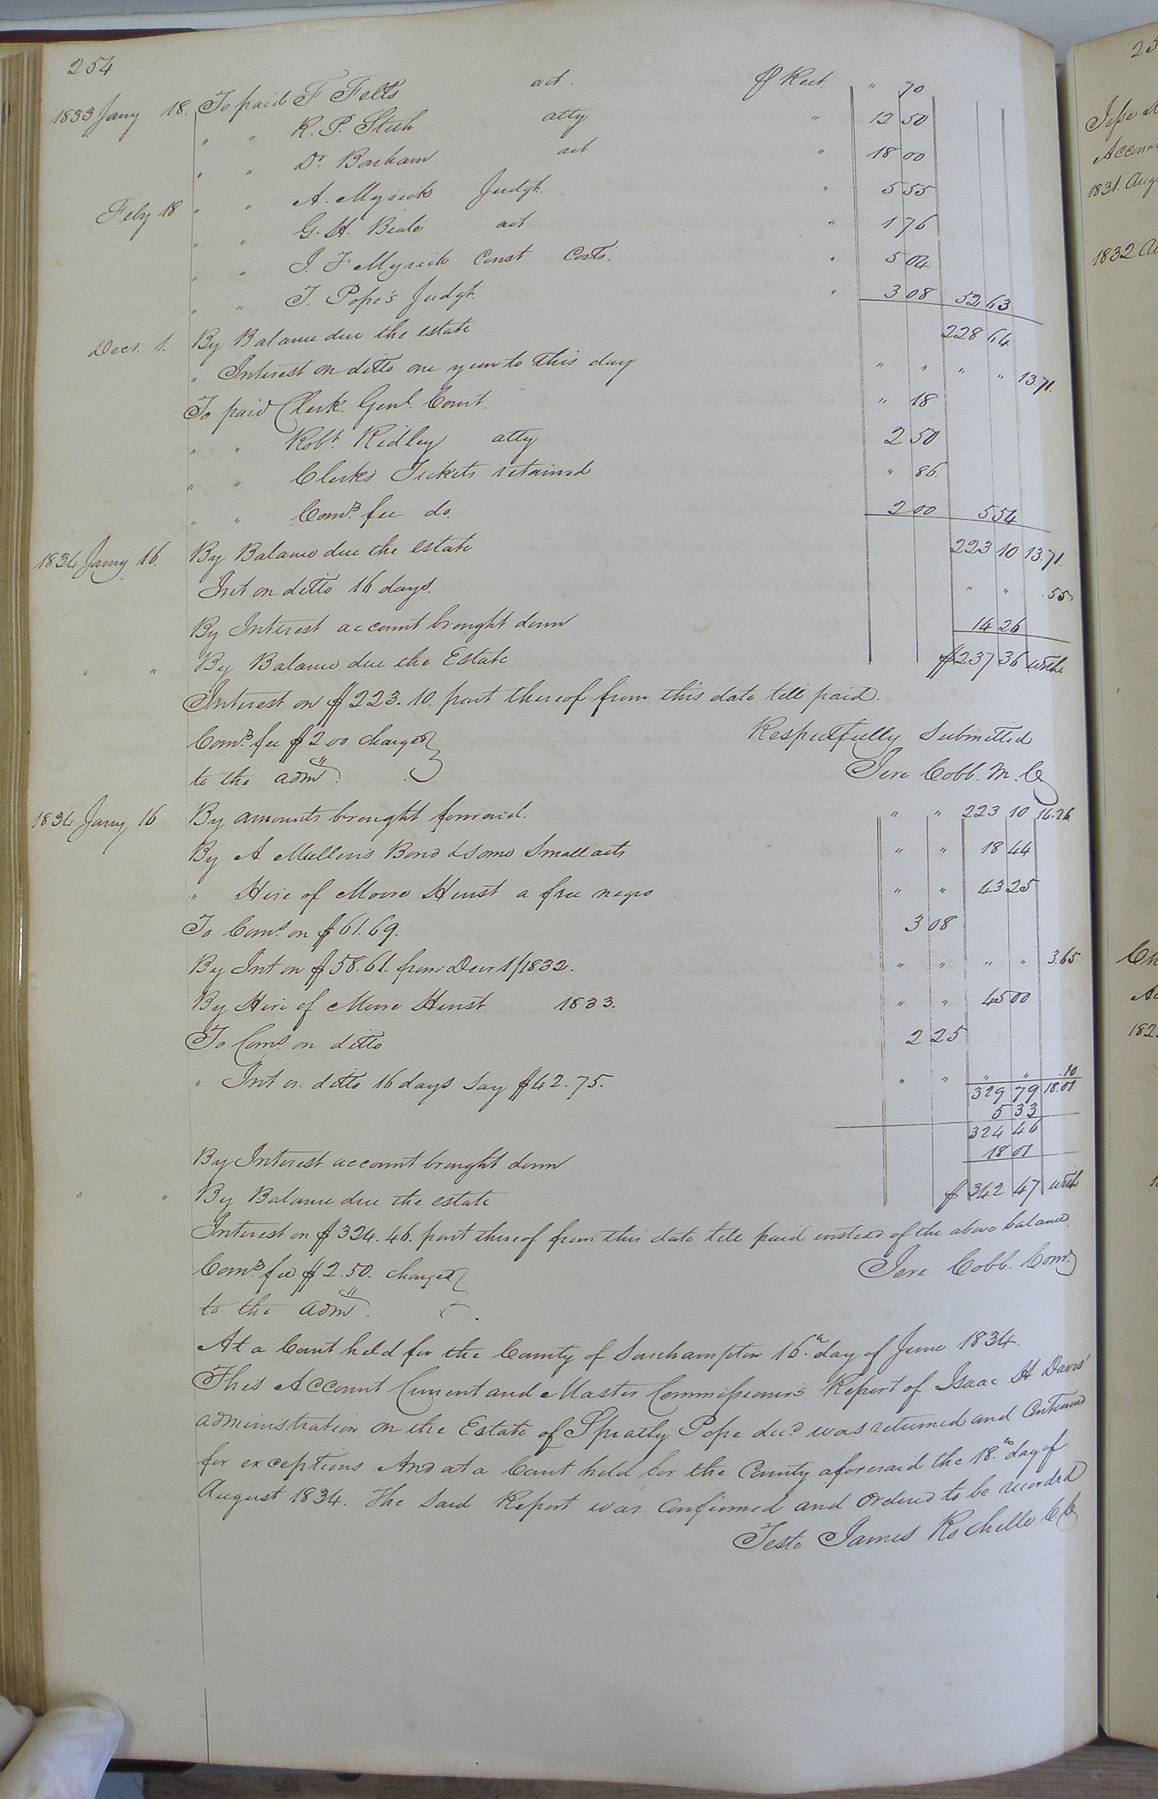 254
1833 Jany 18. To paid F Felts act. ℘ Rect. " 70
" " R. P. Steth atty " 12 50
" " Dr. Barham act " 18 00
" " A. Myrick Judgt. " 5 55
Feby 18 " " G. H. Beale act " 1 76
" " J. F Myrick Const Costs. " 5 04
" " J. Pope's Judgt. " 3 08 52 63
Decr. 1. By Balance due the estate 228 64
" Interest on ditto one year to this day " " " " 13.71
To paid Clerk. Genl. Court. " 18
" " Robt Ridley atty 2 50
" " Clerks Tickets retained " 86
" " Comrs fee do. 2 00 5 54
1834 Jany 16. By Balance due the estate 223 10 13.71.
Int on ditto 16 days. " " .55
By Interest account brought down 14 26
" " By Balance due the Estate $237 36 with
Interest on $223.10. part thereof from this date till paid.
Comrs fee $2 00 charged
to the admr. Respectfully Submitted
Jere Cobb. M. C
1834 Jany 16 By amounts brought forward. " " 223 10 14.26
By A Mullins Bond & some Small acts " " 18 44
" Hire of Moore Hurst a free negro " " 43 25
To Coms. on $61.69. 3 08
By Int on $58.61. from Decr 1/1832. " " " " 3.65
By Hire of Moore Hurst 1833. " " 45 00
To Coms on ditto 2 25
" Int on ditto 16 days say $42.75. " " " " .10
329 79 18.01
5 33
324 46
By Interest account brought down 18 01
" " By Balance due the estate $342 47 with
Interest on $324.46. part thereof from this date till paid instead of the above balance.
Comrs fee $2.50. charged
to the admr. Jere Cobb. Comr.
At a Court held for the County of Southampton 16th day of June 1834.
This Account Current and Master Commissioners Report of Isaac H Davis'
administration on the Estate of Spratly Pope decd was returned and Continued
for exceptions And at a Court held for the County aforesaid the 18th day of
August 1834. The Said Report was Confirmed and Ordered to be recorded
Teste James Rochelle C C
25
1832